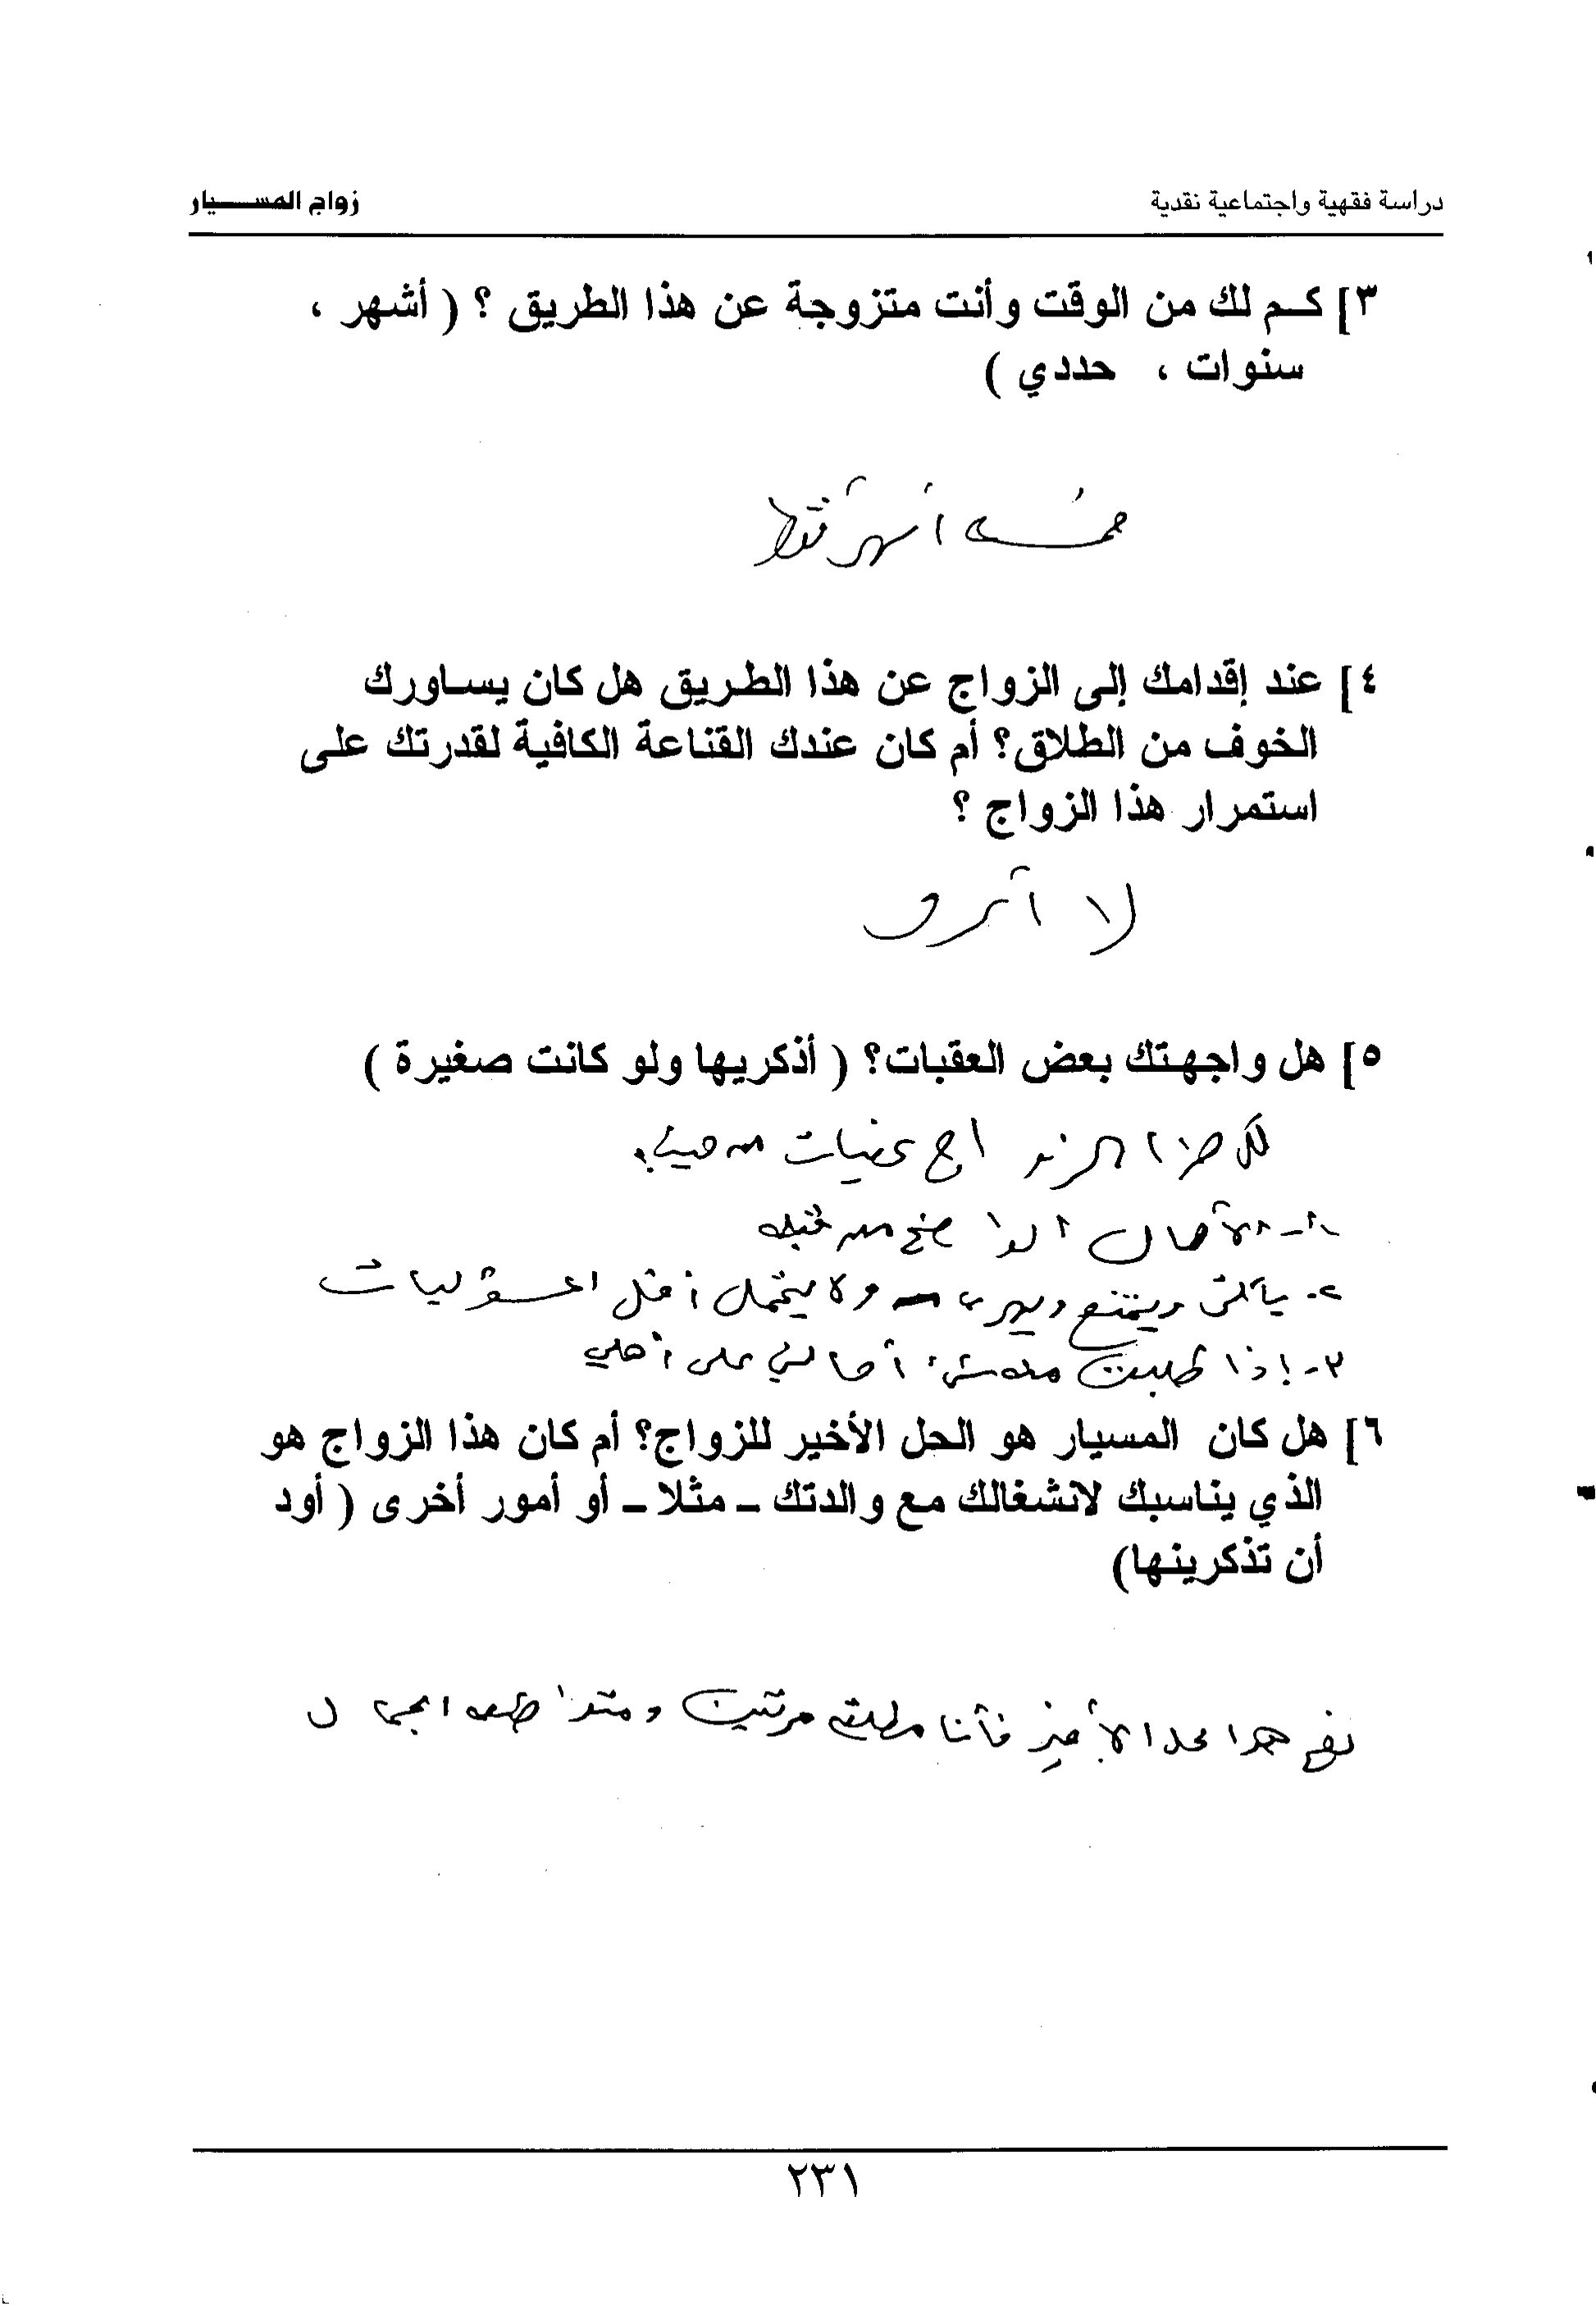 دراسة فقهية واجتماعية نقدية زواج المســـيار
٣] كـم لك من الوقت وأنت متزوجة عن هذا الطريق ؟ ( أشهر ،
سنوات ، حددي )
خمسه أشهر فقط
٤] عند إقدامك إلى الزواج عن هذا الطريق هل كان يساورك
الخوف من الطلاق؟ أم كان عندك القناعة الكافية لقدرتك على
استمرار هذا الزواج ؟
لا
٥] هل واجهتك بعض العقبات؟ ( أذكريها ولو كانت صغيرة )
كل هذا الزواج عقبات من
١- الأهمال الواضح من قبله
٢- يأكل ويتمتع و ولا يتحمل أقل المسؤليات
٣- إذا طلبت منه شيء أحالني على أهلي
٦] هل كان المسيار هو الحل الأخير للزواج؟ أم كان هذا الزواج هو
الذي يناسبك لانشغالك مع والدتك ـ مثلا ـ أو أمور أخرى ( أود
أن تذكرينها)
نعم هو الحل الأخير فأنا مطلقه مرتين ومتواضعه الجمال
٢٣١